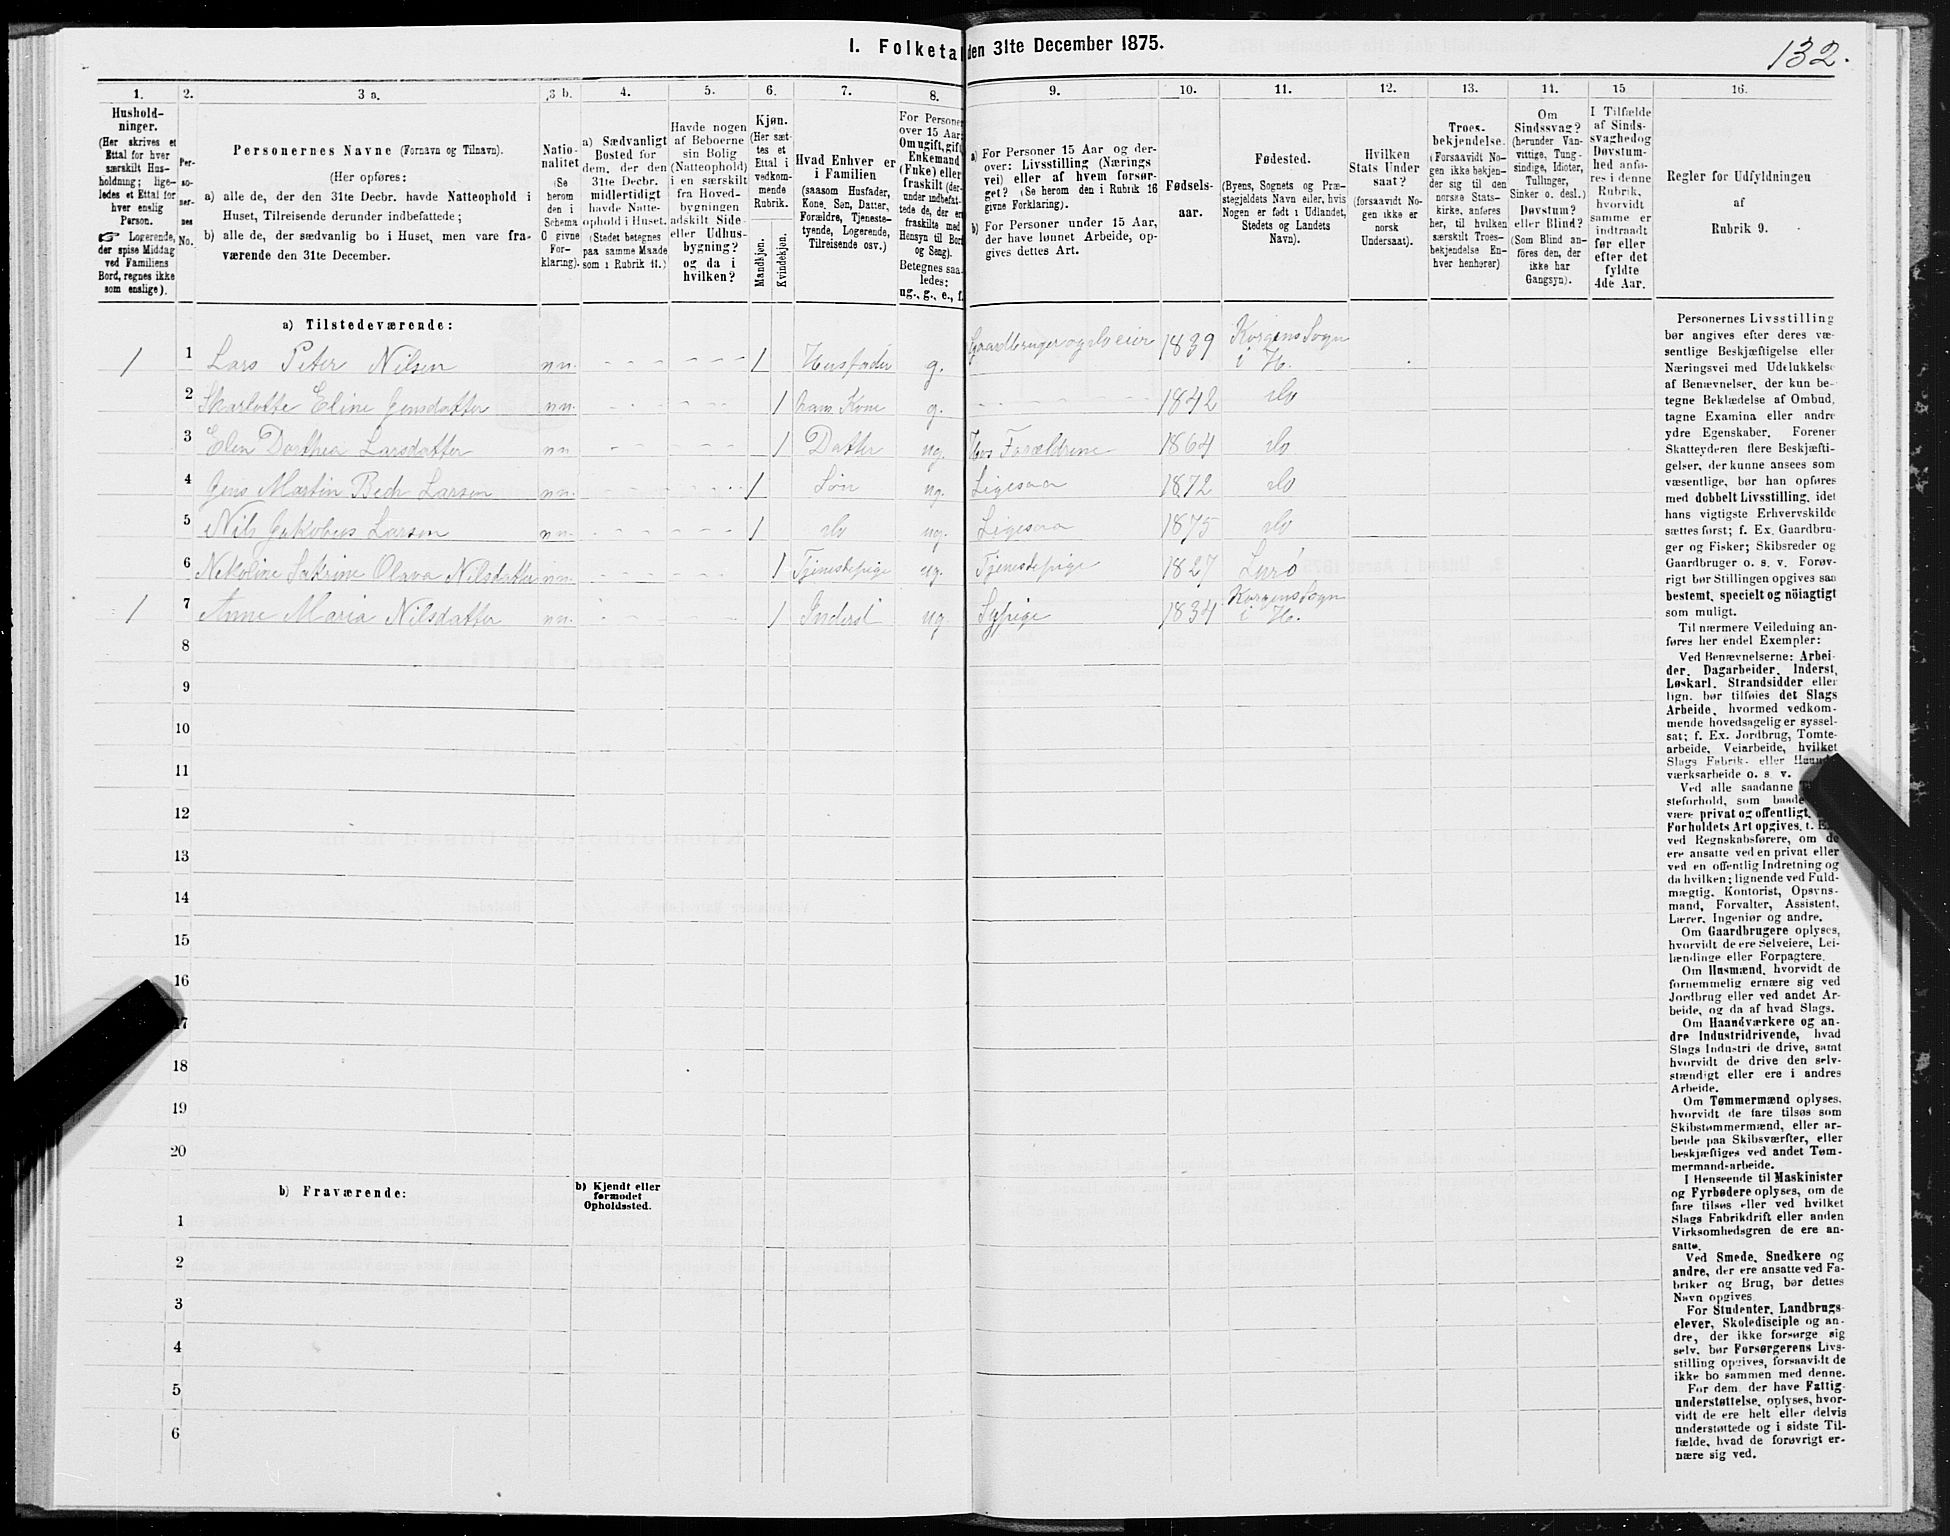 I. Folketal den 31te December 1875.
132.
1.
2.
3 a.
3 b.
4.
5.
6.
7.
8.
9.
10.
11.
12.
13.
14.
15
16.
Hushold-
ninger.
(Her skrives et
Ettal for hver
særskilt Hus-
holdning; lige-
ledes et Ettal for
hver enslig
Person.
☞ Logerende,
der spise Middag
ved Familiens
Bord, regnes ikke
som enslige).
Per-
so-
ner-
nes
No.
Personernes Navne (Fornavn og Tilnavn).
(Her opføres:
a) alle de, der den 31te Decbr. havde Natteophold i
Huset, Tilreisende derunder indbefattede;
b) alle de, der sædvanlig bo i Huset, men vare fra-
værende den 31te December.
Natio-
nalitet
(Se
herom
den i
Schema
C givne
For-
klaring).
a) Sædvanligt
Bosted for
dem, der den
31te Decbr.
midlertidigt
havde Natte-
ophold i Huset.
(Stedet betegnes
paa samme Maade
som i Rubrik 11.)
Havde nogen
af Beboerne
sin Bolig
(Natteophold)
i en særskilt
fra Hoved-
bygningen
adskilt Side-
eller Udhus-
bygning?
og da i
hvilken?
Kjøn.
(Her sæt-
tes et
Ettal i
vedkom-
mende
Rubrik.
Mandkjøn.
Kvindekjøn.
Hvad Enhver er
i Familien
(saasom Husfader,
Kone, Søn, Datter,
Forældre, Tjeneste-
tyende, Logerende,
Tilreisende osv.)
For Personer
over 15 Aar:
Om ugift, gift,
Enkemand
(Enke) eller
fraskilt (der-
under indbefat-
tede de, der ere
fraskilte med
Hensyn til Bord
og Seng).
Betegnes saa-
ledes:
ug., g., e., f.
a) For Personer 15 Aar og der-
over: Livsstilling (Nærings
vei) eller af hvem forsør-
get? (Se herom den i Rubrik 16
givne Forklaring).
b) For Personer under 15 Aar,
der have lønnet Arbeide, op-
gives dettes Art.
Fødsels-
aar.
Fødested.
(Byens, Sognets og Præ-
stegjeldets Navn eller, hvis
Nogen er født i Udlandet,
Stedets og Landets
Navn).
Hvilken
Stats Under
saat?
(forsaavidt No-
gen ikke er
norsk
Undersaat).
Troes-
bekjendelse.
(Forsaavidt No-
gen ikke bekjen-
der sig til den
norske Stats-
kirke, anføres
her, til hvilken
særskilt Troes-
bekjendelse En-
hver henhører)
Om
Sindssvag?
(herunder Van-
vittige, Tung-
sindige, Idioter,
Tullinger,
Sinker o. desl.)
Døvstum?
eller Blind?
(Som Blind an-
føres den, der
ikke har
Gangsyn).
I Tilfælde
af Sinds-
svaghed og
Døvstum-
hed anfø-
res i denne
Rubrik,
hvorvidt
samme er
indtraadt
før eller
efter det
fyldte
4de Aar.
Regler for Udfyldningen
af
Rubrik 9.
a) Tilstedeværende:
1 1 Lars Peter Nilsen nn. 1 Husfader g. Gaardbruger og selveier 1839 Korgens Sogn i H.
2 Skarlotte Eline Jensdatter nn. 1 hans Kone g. 1842 do
3 Elen Dorthea Larsdatter nn. 1 Datter ug. Hos Forældrene 1864 do
4 Jens Martin Bech Larsen nn. 1 Søn ug. Ligesaa 1872 do
5 Nils Jakobus Larsen nn. 1 do ug. Ligesaa 1875 do
6 Nekoline Sakrine Olava Nilsdatter nn. 1 Tjenestepige ug. Tjenestepige 1827 Lurö
1 7 Anne Maria Nilsdatter nn. 1 Inderst ug Sypige 1834 Korgens Sogn i H.
8
9
10
11
12
13
14
15
16
17
18
19
20
b) Fraværende:
b) Kjendt eller
formodet
Opholdssted.
1
2
3
4
5
6
Personernes Livsstilling
bør angives efter deres væ-
sentlige Beskjæftigelse eller
Næringsvei med Udelukkelse
af Benævnelser, der kun be-
tegne Beklædelse af Ombud,
tagne Examina eller andre
ydre Egenskaber. Forener
Skatteyderen flere Beskjæfti-
gelser, der kunne ansees som
væsentlige, bør han opføres
med dobbelt Livsstilling, idet
hans vigtigste Erhvervskilde
sættes først; f. Ex. Gaardbru-
ger og Fisker; Skibsreder og
Gaardbruger o. s. v. Forøv-
rigt bør Stillingen opgives saa
bestemt, specielt og nöiagtigt
som muligt.
Til nærmere Veiledning an-
føres her endel Exempler:
Ved Benævnelserne: Arbei-
der, Dagarbeider, Inderst,
Løskarl, Strandsidder eller
lign. bør tilføies det Slags
Arbeide, hvormed vedkom-
mende hovedsagelig er syssel-
sat; f. Ex. Jordbrug, Tomte-
arbeide, Veiarbeide, hvilket
Slags Fabrik- eller Haand-
værksarbeide o. s. v.
Ved alle saadanne
steforhold, som baade
være privat og offentligt,
Forholdets Art opgives, t. Ex.
ved Regnskabsførere, om de
ere ansatte ved en privat eller
ved en offentlig Indretning og
da hvilken; lignende ved Fuld-
mægtig, Kontorist, Opsyns-
mand, Forvalter, Assistent,
Lærer, Ingeniør og andre.
Om Gaardbrugere oplyses,
hvorvidt de ere Selveiere, Lei-
lændinge eller Forpagtere.
Om Husmænd, hvorvidt de
fornemmelig ernære sig ved
Jordbrug eller ved andet Ar-
beide, og da af hvad Slags.
Om Haandværkere og an-
dre Industridrivende, hvad
Slags Industri de drive, samt
hvorvidt de drive den selv-
stændigt eller ere i andres
Arbeide.
Om Tømmermænd oplyses,
hvorvidt de fare tilsøs som
Skibstømmermænd, eller ar-
beide paa Skibsværfter, eller
beskjæftiges ved andet Tøm-
mermand-arbeide.
I Henseende til Maskinister
og Fyrbødere oplyses, om de
fare tilsøs eller ved hvilket
Slags Fabrikdrift eller anden
Virksomhedsgren de ere an-
satte.
Ved Smede, Snedkere og
andre, der ere ansatte ved Fa-
briker og Brug, bør dettes
Navn opgives.
For Studenter, Landbrugs-
elever, Skoledisciple og an-
dre, der ikke forsørge sig
selv, bør Forsørgerens Livs-
stilling opgives, forsaavidt de
ikke bo sammen med denne.
For dem, der have Fattig-
understøttelse, oplyses, hvor-
vidt de ere helt eller delvis
understøttede og i sidste Til-
fælde, hvad de forøvrigt er-
nære sig ved.